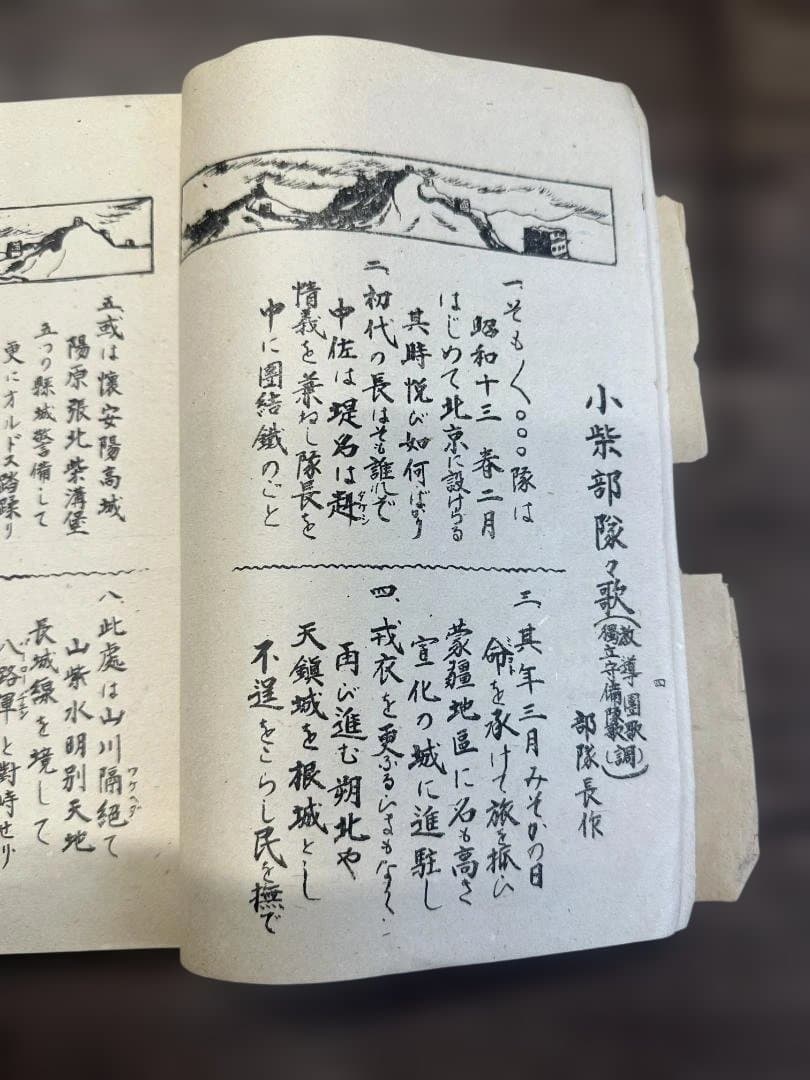 小柴部隊々歌(教導團歌
獨立守備隊歌(調))
部隊長作
一、そも〱〇〇〇隊は
昭和十三 春二月
はじめて北京に設けらる
其時悦び如何ばかり
二、初代の長はそも誰れぞ
中佐は堤名は赳
タケシ
情義を兼ねし隊長を
中に團結鐵のごと
三、其年三月みそかの日
命を承けて旅を拡ひ
蒙疆地區に名も高き
宣化の城に進駐し
四、戎衣を更ふるいとまもなく
再び進む朔北や
天鎮城を根城とし
不逞をこらし民を撫で
四
五、或は懷安陽高城
陽原張北柴溝堡
五つの縣城警備して
更にオルドス踏蹂り
八、此處は山川隔絶て
山紫水明別天地
長城線を境して
八路軍と對峙せり